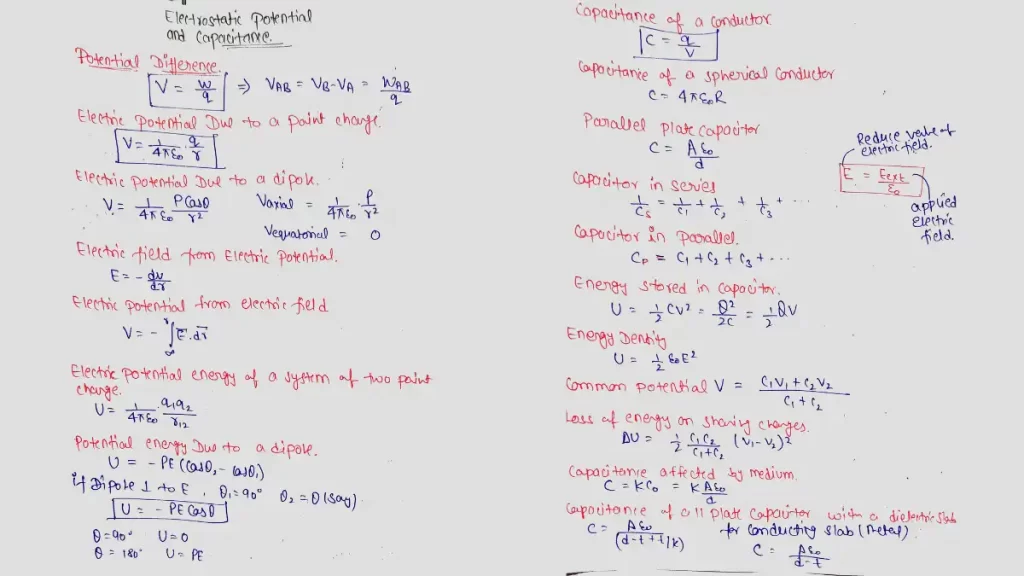 Electrostatic Potential
and Capacitance.
Potential Difference.
V = W/q ⇒ VAB = VB-VA = WAB/q
Electric potential Due to a point charge.
V = 1/4πε0 . q/r
Electric potential Due to a dipole.
V = 1/4πε0 PCosθ/r² Vaxial = 1/4πε0 . P/r²
Vequatorial = 0
Electric field from Electric Potential.
E = - dv/dr
Electric potential from electric field
V = - ∫∞^r E⃗.dr⃗
Electric potential energy of a system of two point
charge.
U = 1/4πε0 . q1q2/r12
Potential energy Due to a dipole.
U = - PE (Cosθ2 - Cosθ1)
if Dipole ⊥ to E, θ1 = 90° θ2 = θ (say).
U = - PE Cosθ
θ = 90° U = 0
θ = 180° U = PE
Capacitance of a conductor
C = q/V
Capacitance of a spherical conductor
C = 4πε0R
Parallel plate capacitor
C = Aε0/d
Capacitor in series
1/Cs = 1/C1 + 1/C2 + 1/C3 + ...
Capacitor in Parallel.
CP = C1 + C2 + C3 + ...
Energy stored in capacitor.
U = 1/2 CV² = Q²/2C = 1/2 QV
Energy Density
U = 1/2 ε0E²
Common potential V = C1V1 + C2V2/C1 + C2
Loss of energy on sharing charges.
ΔU = 1/2 C1C2/C1+C2 (V1-V2)²
Capacitance affected by medium.
C = KC0 = K Aε0/d
Capacitance of a || plate capacitor with a dielectric slab
C = Aε0/(d-t+t/K) for conducting slab (metal)
C = Aε0/d-t
Reduce value of
electric field.
E = Eext/ε0
applied
electric
field.